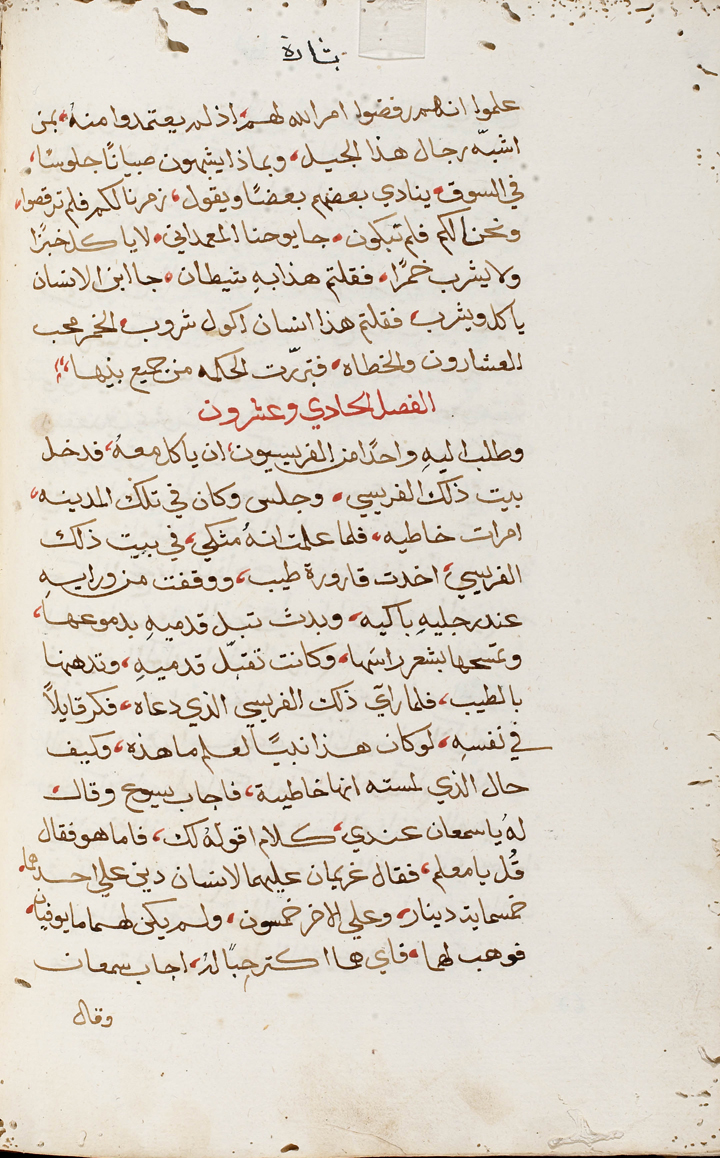 بشارة
علموا انهم رفضوا امر الله لهم، اذ لم يعتمدوا منهُ، بمن
اشبّه رجال هذا الجيل، وبماذا يشبهون صبيانًا جلوسًا،
في السوق، ينادي بعضهم بعضًا ويقول، زمرنا لكم فلم ترقصوا،
ونحن الكم فلم تبكون، جا يوحنا المعمداني، لا ياكل خبزًا
ولا يشرب خمرًا، فقلتم هذا بهِ شيطان، جا ابن الانسان
ياكل ويشرب، فقلتم هذا انسان اكول شروب الخمر محب
العشارون والخطاه، فتبرّرت الحكمه من جميع بنيها،
الفصل الحادي وعشرون
وطلب اليهِ واحدًا من الفريسيون، ان ياكل معهُ، فدخل
بيت ذلك الفريسي، وجلس وكان في تلك المدينه،
امرات خاطيه، فلما علمت انهُ متكي، في بيت ذلك
الفريسي، اخدت قارورة طيب، ووقفت من ورايهِ
عند رجليهِ باكيه، وبدت تبل قدميهِ بدموعها،
وتمسحها بشعر راسها، وكانت تقبّل قدميهِ، وتدهنها
بالطيب، فلما رآي ذلك الفريسي الذي دعاه، فكر قايلاً
في نفسهِ، لو كان هذا نبيًا لعلم ما هذه، وكيف
حال الذي لمسته انها خاطيية، فاجاب يسوع وقال،
لهُ يا سمعان عندي، كلام اقولهُ لك، فاما هو فقال
قُل يا معلم، فقال غريمان عليهما لانسان دين علي احدهما،
خمسماية دينار، وعلي الاخر خمسون، ولم يكن لهما ما يوفيان،
فوهب لهما، فاي هما اكتر حبًا لهُ، اجاب سمعان
وقال